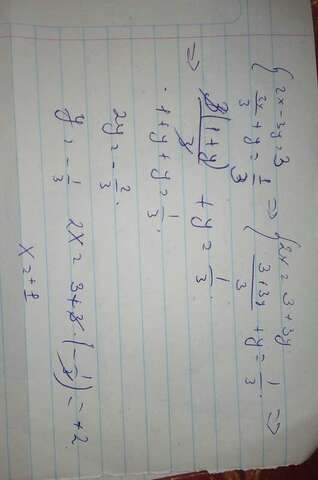 { 2x - 3y = 3 ⇒ { 2x = 3 + 3y ⇒
2x/3 + y = 1/3 (3 + 3y)/3 + y = 1/3.
⇒ 3(1+y)/3 + y = 1/3.
1 + y + y = 1/3.
2y = - 2/3.
y = - 1/3 2x = 3 + 3 · (- 1/3) = +2
x = +1